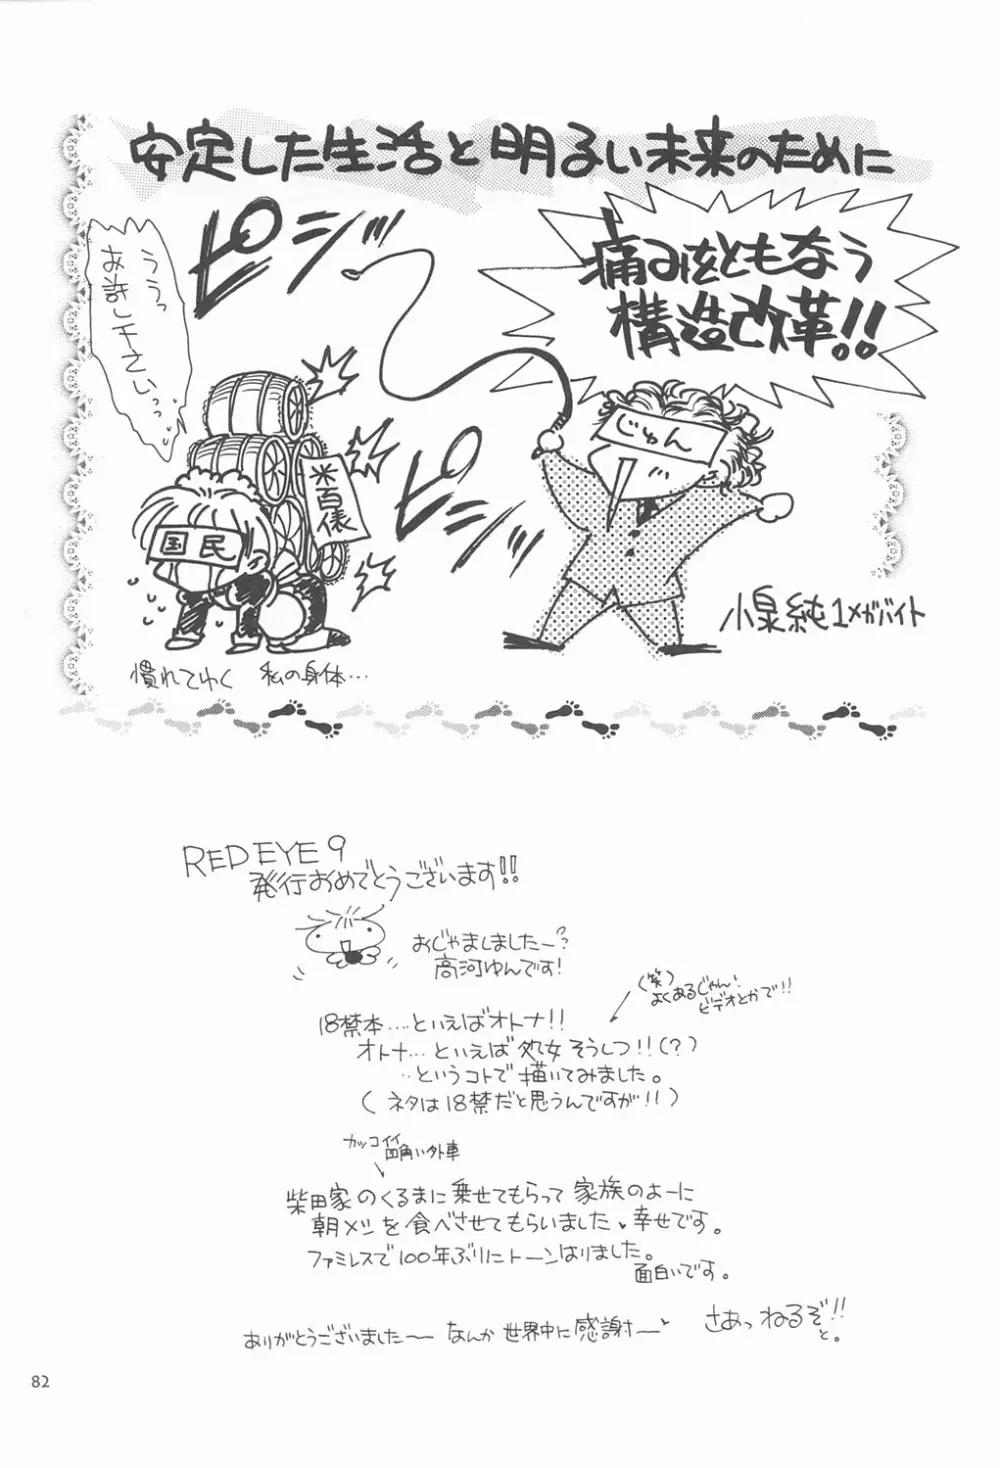 安定した生活と明るい未来のために
痛みをともなう
構造改革!!
ピシッ
ううっ
お許し下さいっっ
じゅん
米百俵
国民
ピシッ
小泉純1メガバイト
慣れてゆく 私の身体…
RED EYE 9
発行おめでとうございます!!
おじゃましましたー?
高河ゆんです!
(笑)
よくあるじゃん!
ビデオとかで!!
18禁本…といえばオトナ!!
オトナ…といえば処女そうしつ!!(?)
…というコトで描いてみました。
(ネタは18禁だと思うんですが!!)
カッコイイ
四角い外車
柴田家のくるまに乗せてもらって家族のよーに
朝メシを食べさせてもらいました、幸せです。
ファミレスで100年ぶりにトーンはりました。
面白いです。
ありがとうございました〜〜 なんか世界中に感謝〜
さあっねるぞ!!
と。
82